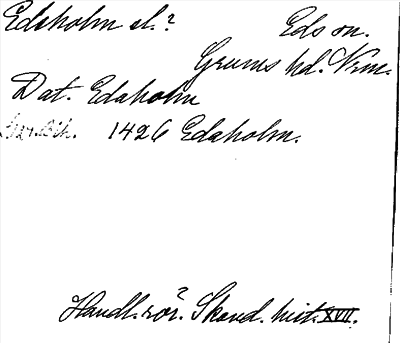 Edsholm el.? Eds sn.
Grums hd. Vrm.
Dat. Edaholm
1426 Edaholm.
Handl. rör. Skand. hist. XVII.